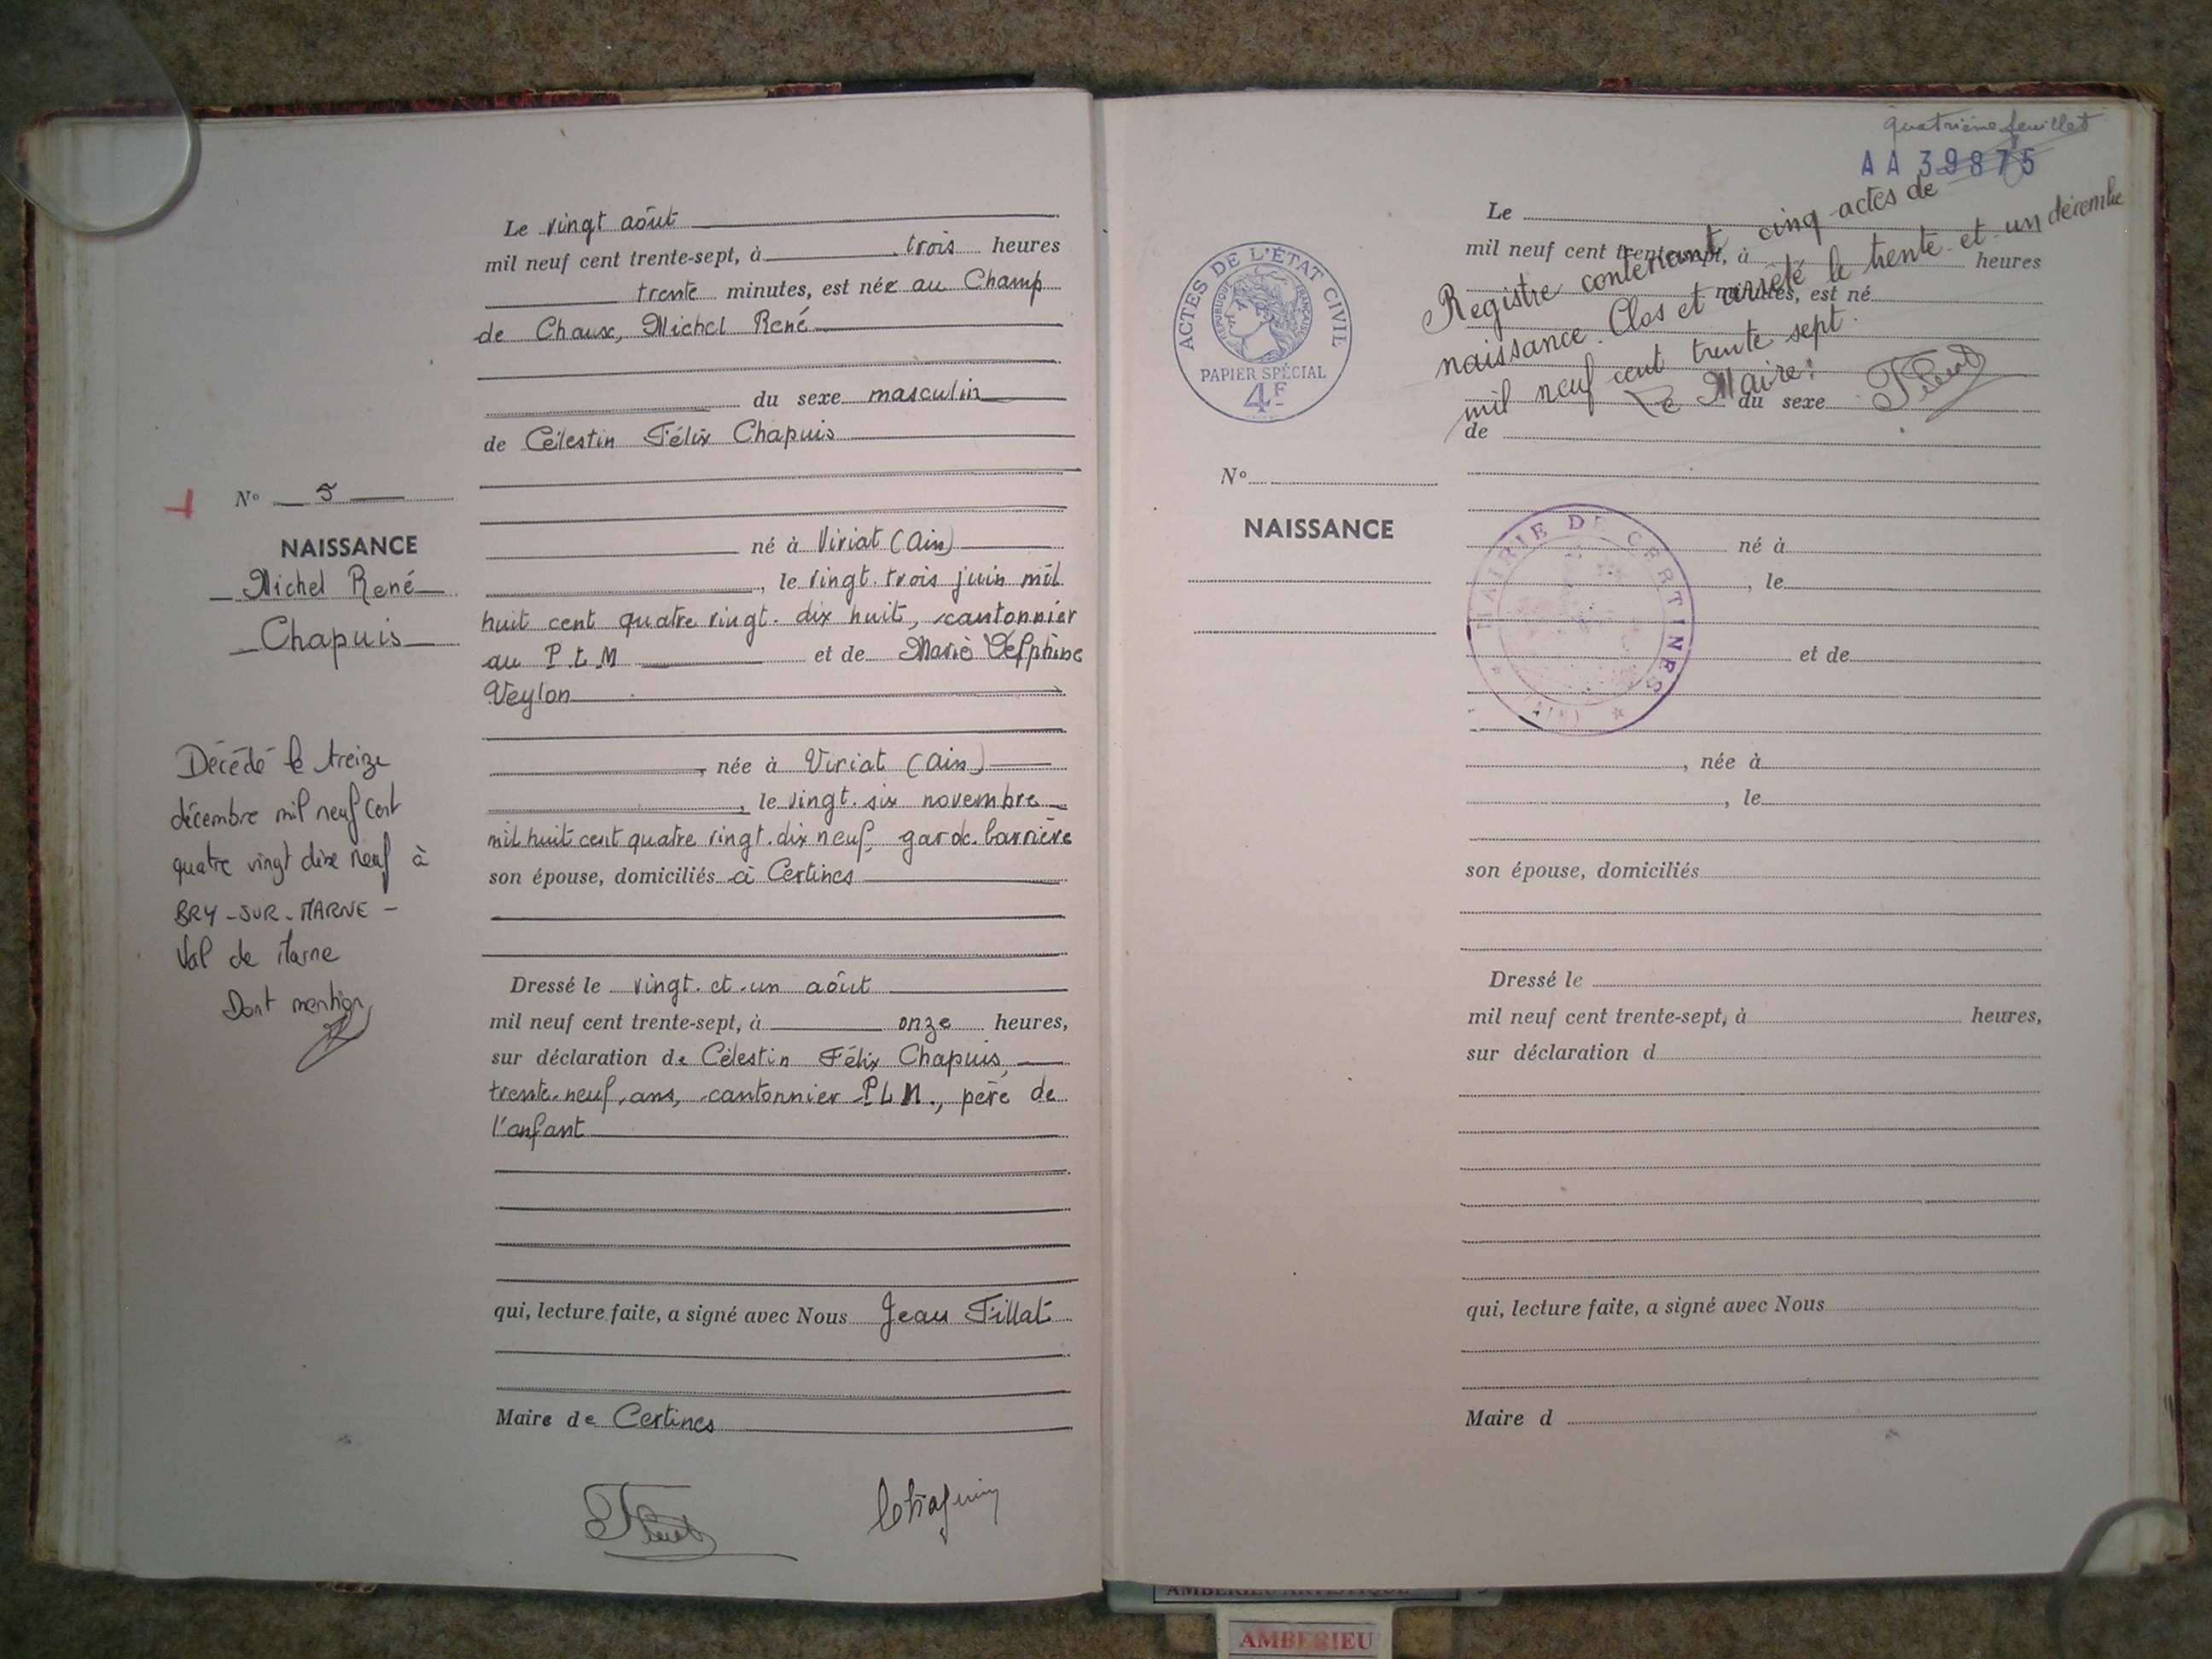 Le vingt août
mil neuf cent trente-sept, à trois heures
trente minutes, est née au Champ
de Chaux, Michel René
du sexe masculin
de Célestin Félix Chapuis
né à Viriat (Ain)
, le vingt-trois juin mil
huit cent quatre vingt-dix huit, cantonnier
au P L M et de Marie Delphine
Veylon
, née à Viriat (Ain)
, le vingt-six novembre
mil huit cent quatre vingt-dix neuf, garde-barrière
son épouse, domiciliés à Certines
Dressé le vingt-et-un août
mil neuf cent trente-sept, à onze heures,
sur déclaration de Célestin Félix Chapuis,
trente-neuf ans, cantonnier P L M., père de
l'enfant
qui, lecture faite, a signé avec Nous Jean Tillat
Maire de Certines
N° 5
NAISSANCE
Michel René
Chapuis
Décédé le treize
décembre mil neuf cent
quatre vingt dix neuf à
BRY-SUR-MARNE -
Val de Marne
Dont mention
quatrième feuillet
AA 39875
ACTES DE L'ÉTAT CIVIL
RÉPUBLIQUE FRANÇAISE
PAPIER SPÉCIAL
4F
Registre contenant cinq actes de
naissance. Clos et arrêté le trente-et-un décembre
mil neuf cent trente sept.
Le Maire:
Le
mil neuf cent trente-sept, à heures
minutes, est né
du sexe
de
N°
NAISSANCE
MAIRIE DE CERTINES
(AIN)
né à
, le
et de
, née à
, le
son épouse, domiciliés
Dressé le
mil neuf cent trente-sept, à heures,
sur déclaration d
qui, lecture faite, a signé avec Nous
Maire d
AMBERIEU ARTISTIQUE
AMBERIEU